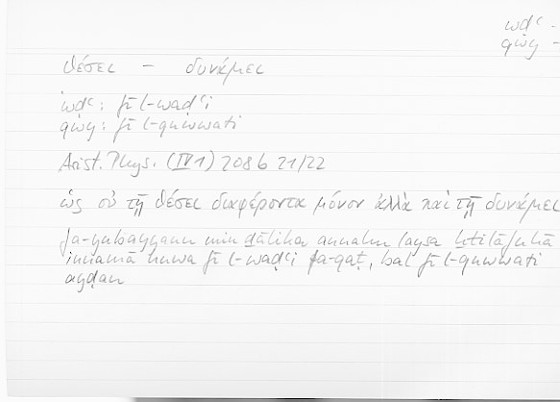 wḍʿ -
qwy -
θέσει – δυνάμει
wḍʿ: fī l-waḍʿi
qwy: fī l-quwwati
Arist. Phys. (IV 1) 208b 21/22
ὡς οὐ τῇ θέσει διαφέροντα μόνον ἀλλὰ καὶ τῇ δυνάμει
fa-yubayyanu min ḏālika annahu laysa ḫtilāfuhā
innamā huwa fī l-waḍʿi fa-qaṭ, bal fī l-quwwati
ayḍan